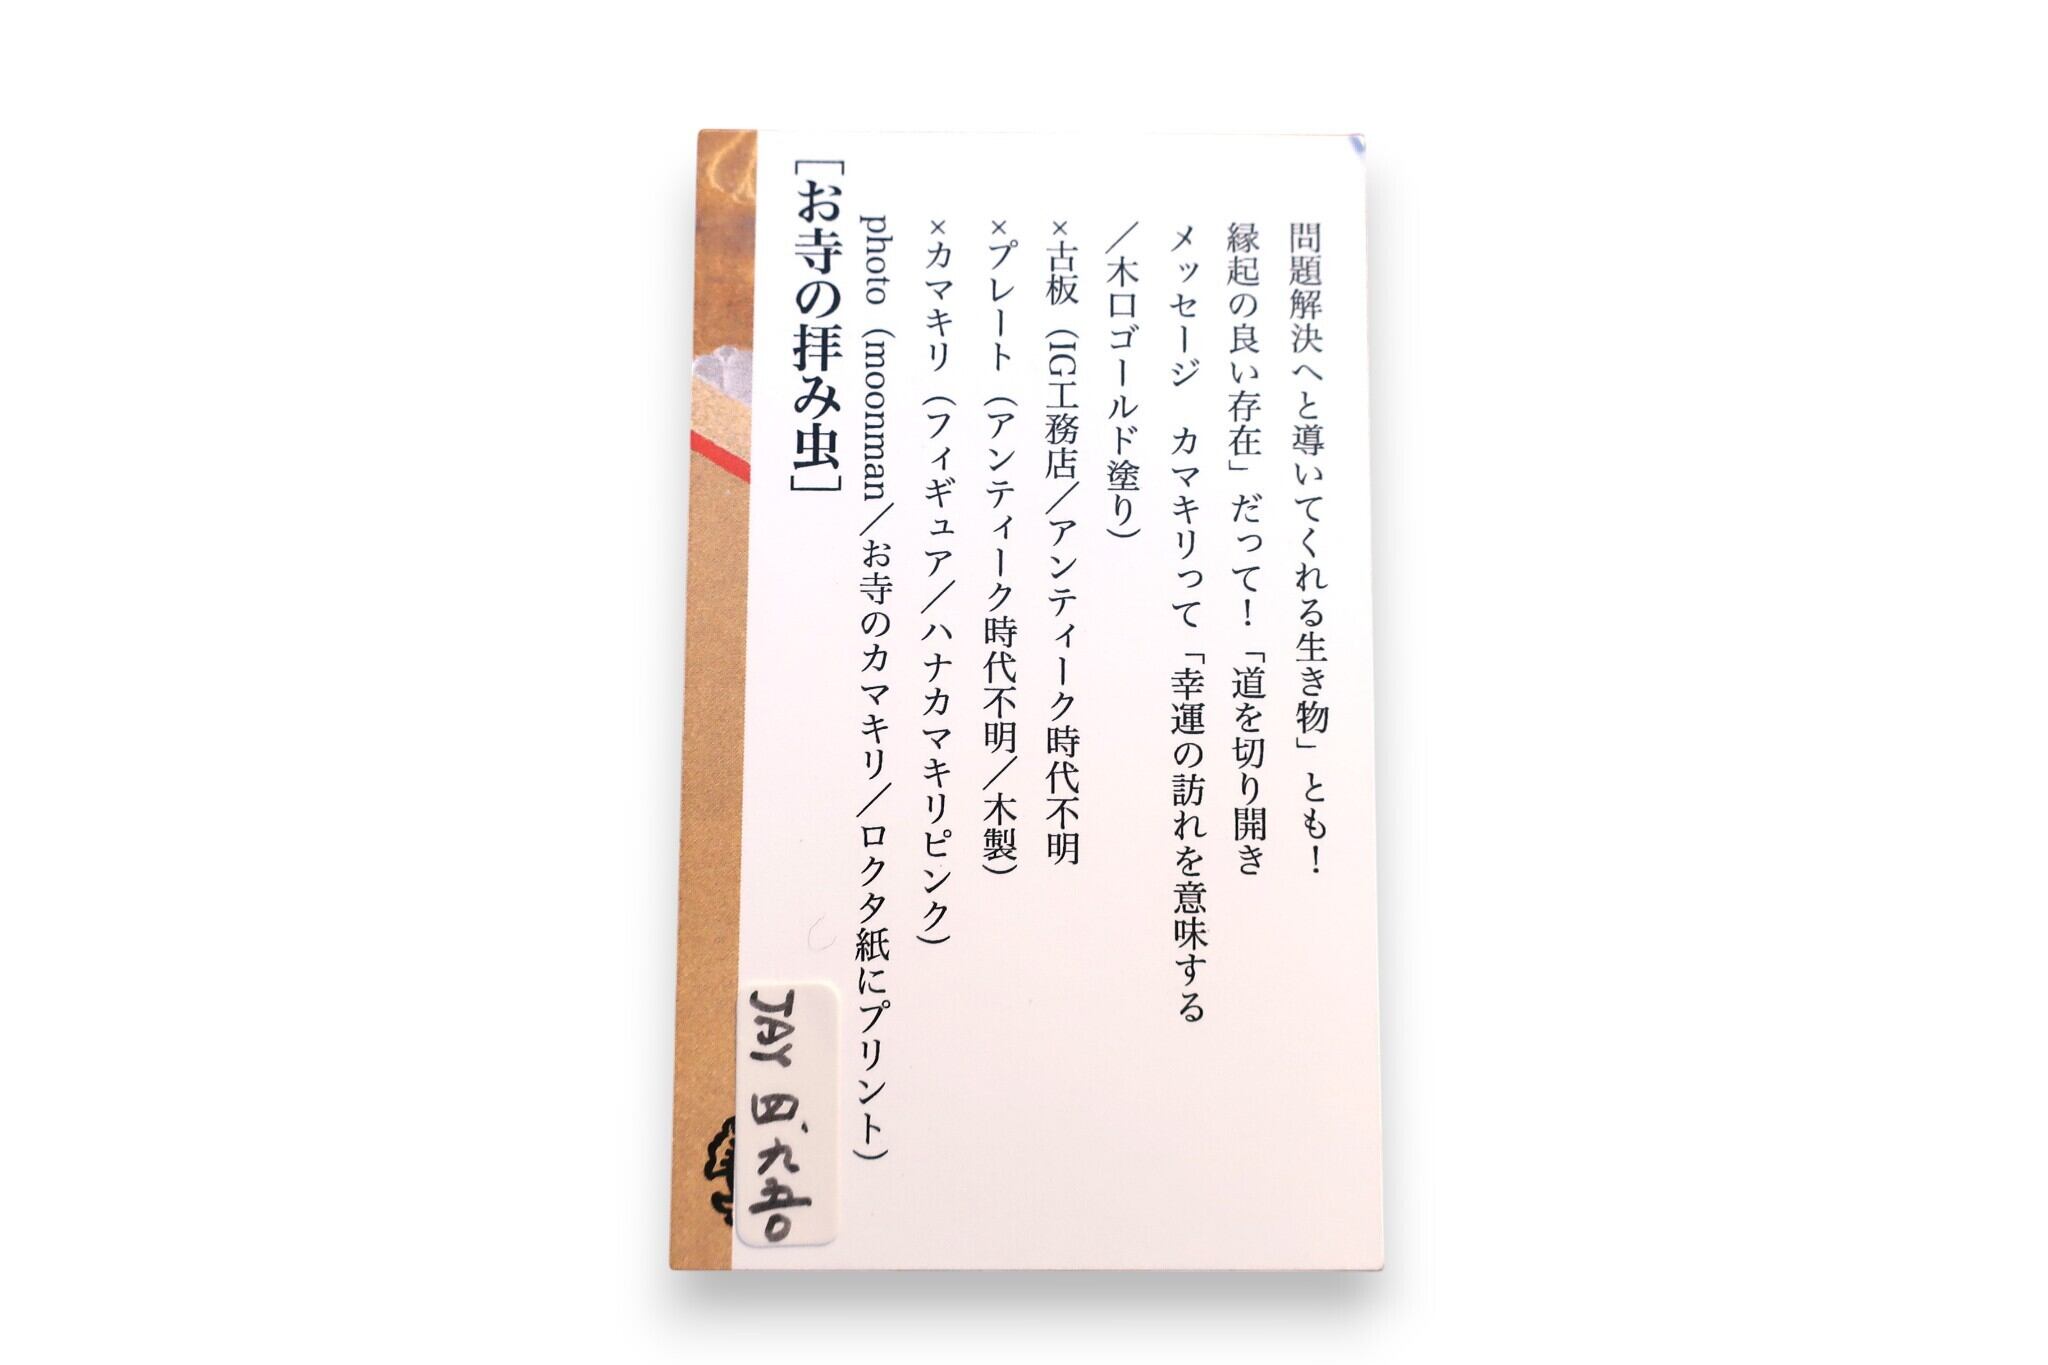 [お寺の拝み虫]
photo（moonman／お寺のカマキリ／ロクタ紙にプリント）
×カマキリ（フィギュア／ハナカマキリピンク）
×プレート（アンティーク時代不明／木製）
×古板（IG工務店／アンティーク時代不明
／木口ゴールド塗り）
メッセージ　カマキリって「幸運の訪れを意味する
縁起の良い存在」だって！「道を切り開き
問題解決へと導いてくれる生き物」とも！
JAY 四、九五〇